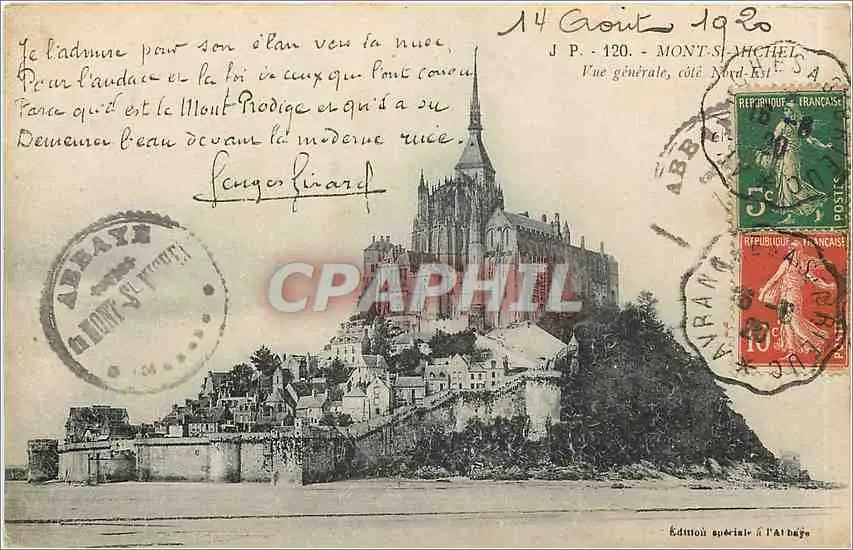 14 Aout 1920
J P. - 120. - MONT-St-MICHEL
Vue générale, côté Nord-Est
Je l'admire pour son élan vers la nuee,
Pour l'audace et la foi de ceux qui l'ont conçu
Parce qu'il est le Mont Prodige et qu'il a su
Demeurer beau devant la moderne ruée.
Georges Girard
ABBAYE
du MONT-St-MICHEL
ABBAYE
REPUBLIQUE FRANÇAISE
5c
POSTES
REPUBLIQUE FRANÇAISE
10c
CPARAPHIL
Edition spéciale à l'Abbaye